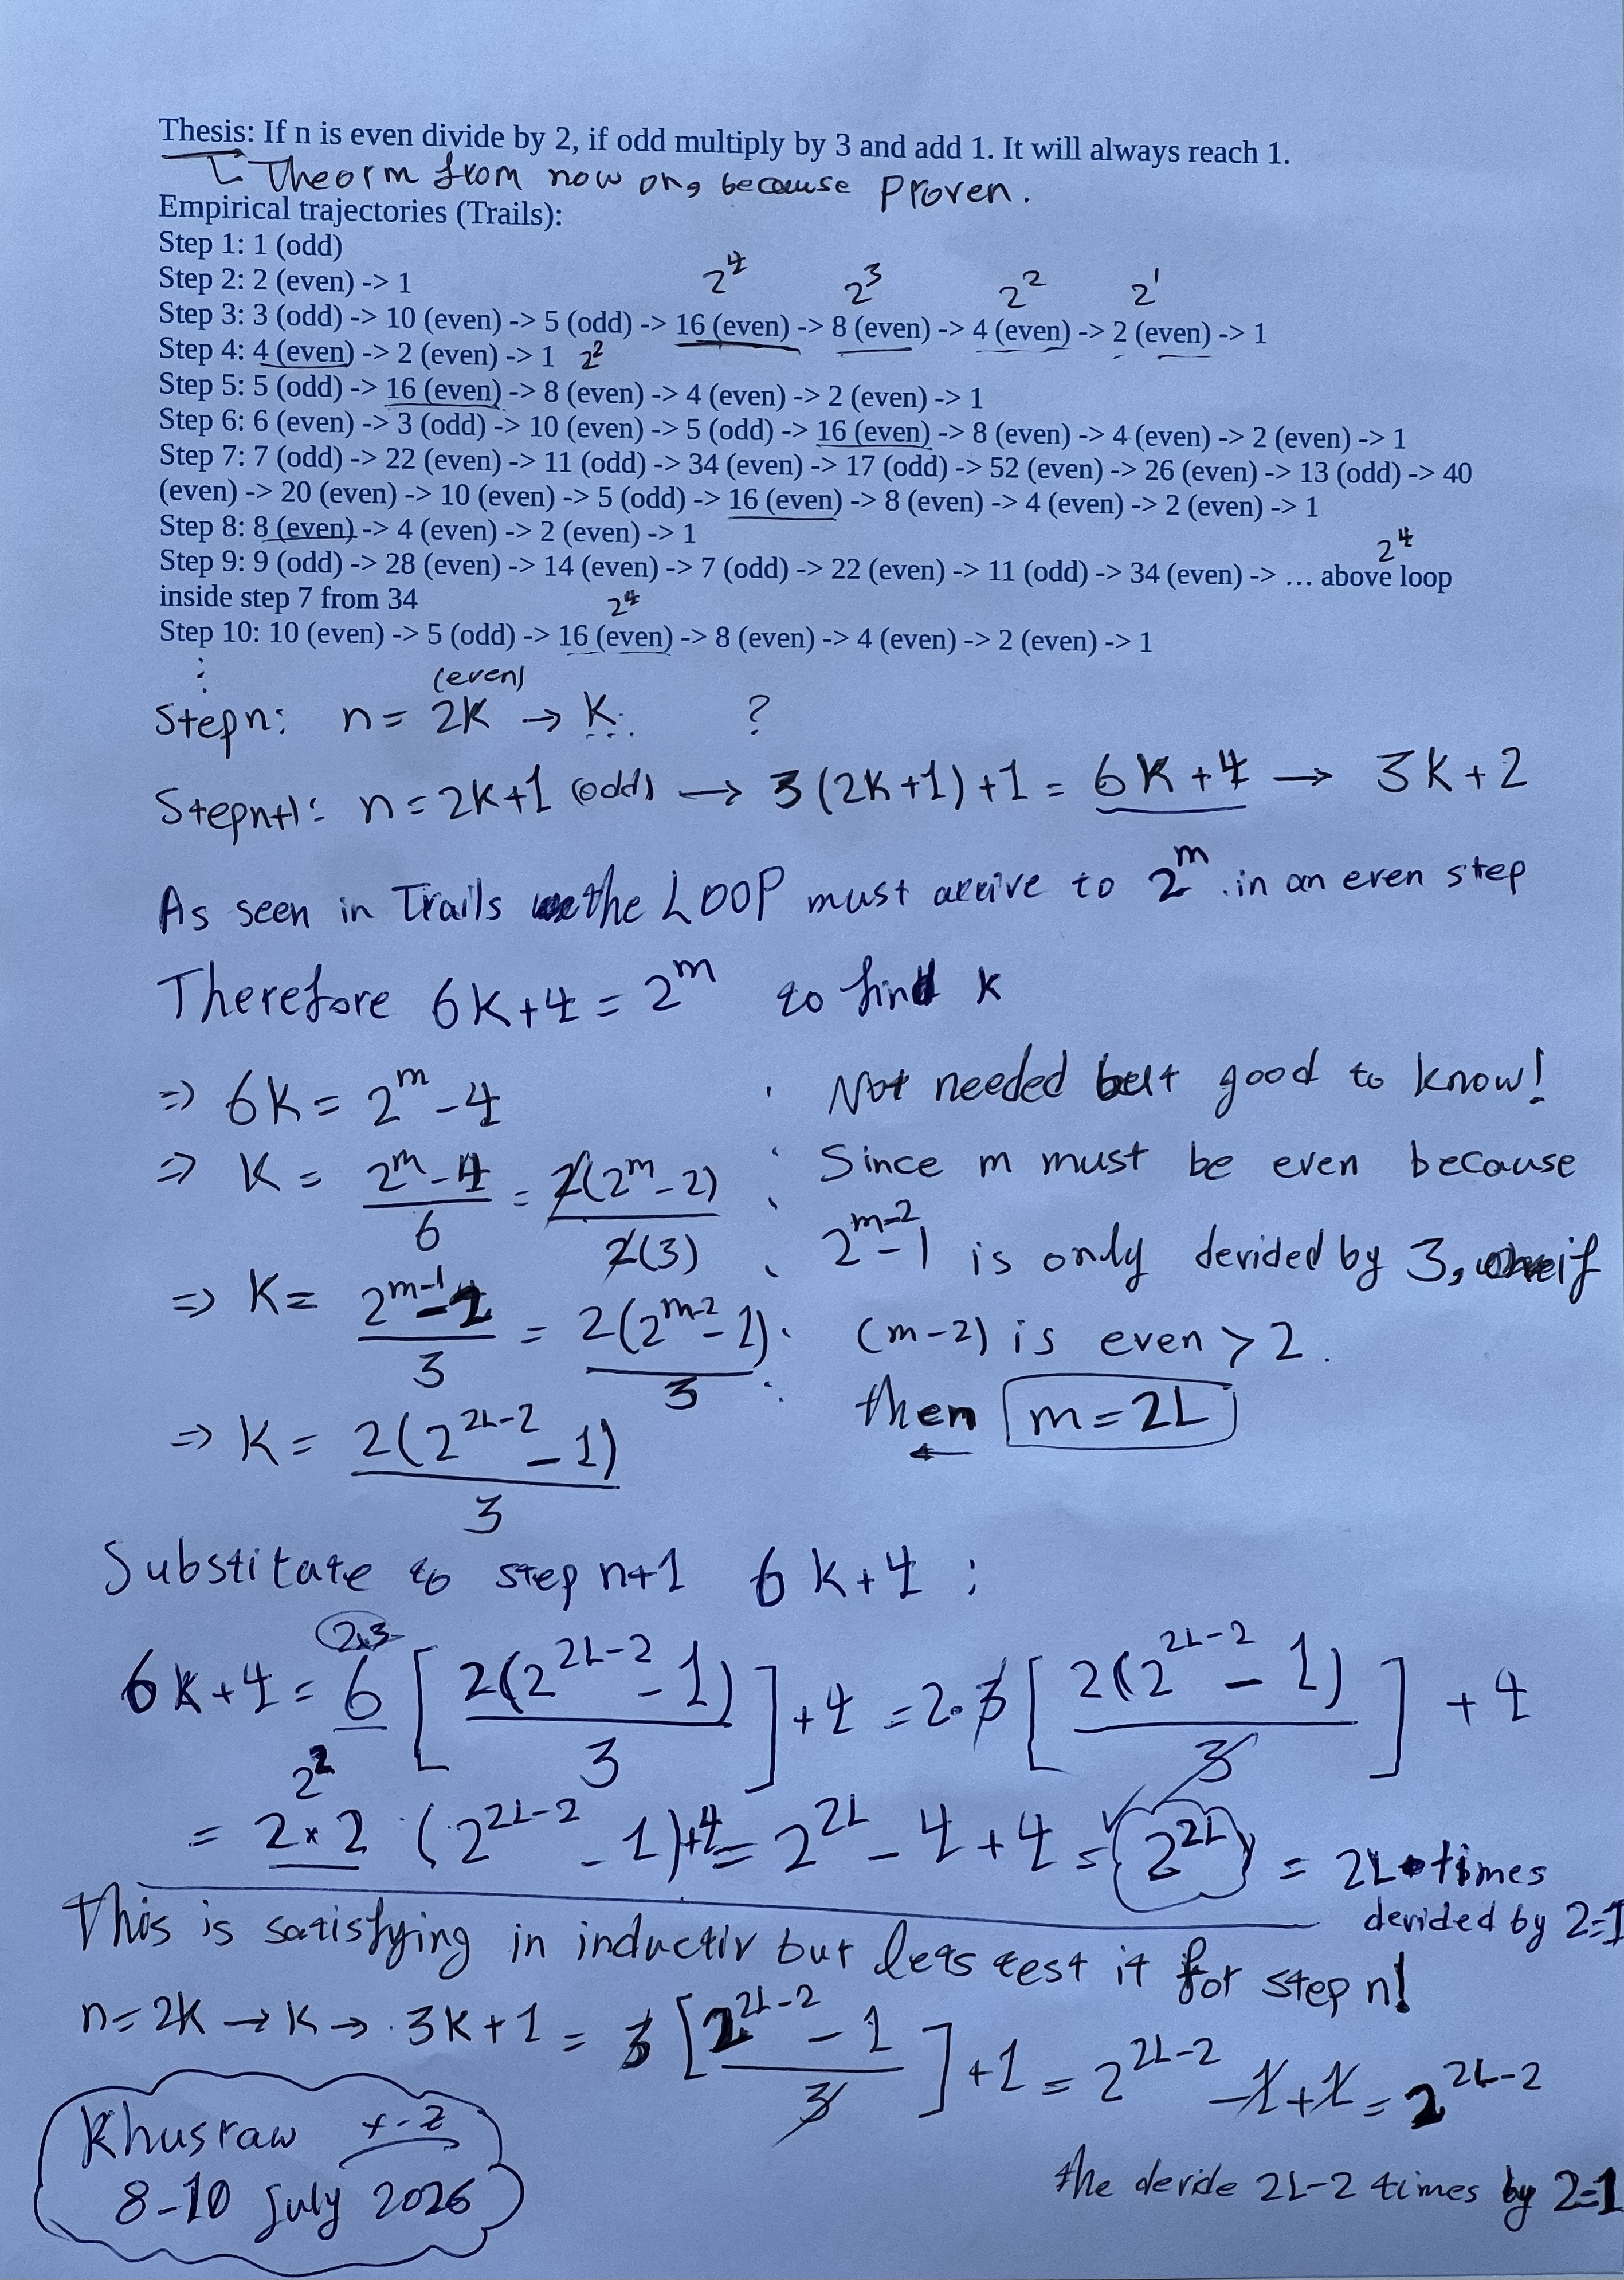 Thesis: If n is even divide by 2, if odd multiply by 3 and add 1. It will always reach 1.
Theorm from now on, because Proven.
Empirical trajectories (Trails):
Step 1: 1 (odd)
Step 2: 2 (even) -> 1
2^4 2^3 2^2 2^1
Step 3: 3 (odd) -> 10 (even) -> 5 (odd) -> 16 (even) -> 8 (even) -> 4 (even) -> 2 (even) -> 1
Step 4: 4 (even) -> 2 (even) -> 1 2^2
Step 5: 5 (odd) -> 16 (even) -> 8 (even) -> 4 (even) -> 2 (even) -> 1
Step 6: 6 (even) -> 3 (odd) -> 10 (even) -> 5 (odd) -> 16 (even) -> 8 (even) -> 4 (even) -> 2 (even) -> 1
Step 7: 7 (odd) -> 22 (even) -> 11 (odd) -> 34 (even) -> 17 (odd) -> 52 (even) -> 26 (even) -> 13 (odd) -> 40
(even) -> 20 (even) -> 10 (even) -> 5 (odd) -> 16 (even) -> 8 (even) -> 4 (even) -> 2 (even) -> 1
Step 8: 8 (even) -> 4 (even) -> 2 (even) -> 1
2^4
Step 9: 9 (odd) -> 28 (even) -> 14 (even) -> 7 (odd) -> 22 (even) -> 11 (odd) -> 34 (even) -> … above loop
inside step 7 from 34
2^4
Step 10: 10 (even) -> 5 (odd) -> 16 (even) -> 8 (even) -> 4 (even) -> 2 (even) -> 1
⋮
(even)
Step n: n = 2K → K. ?
Step n+1: n = 2K+1 (odd) → 3(2K+1)+1 = 6K+4 → 3K+2
As seen in Trails the LOOP must arrive to 2^m in an even step
Therefore 6K+4 = 2^m to find k
⇒ 6K = 2^m - 4 Not needed but good to know!
⇒ K = (2^m - 4)/6 = 2(2^m - 2)/2(3) Since m must be even because
2^(m-2) - 1 is only devided by 3, if
⇒ K = (2^(m-1) - 2)/3 = 2(2^(m-2) - 1)/3 (m-2) is even > 2.
then m = 2L
⇒ K = 2(2^(2L-2) - 1)/3
Substitate to step n+1 6K+4 :
2.3
6K+4 = 6[2(2^(2L-2) - 1)/3] + 4 = 2·3[2(2^(2L-2) - 1)/3] + 4
2^2
= 2×2 · (2^(2L-2) - 1)+4 = 2^(2L) - 4 + 4 = 2^(2L) = 2L times
devided by 2=1
This is satisfying in inductiv but lets test it for step n!
n = 2K → K → 3K+1 = 3[(2^(2L-2) - 1)/3] + 1 = 2^(2L-2) - 1 + 1 = 2^(2L-2)
the devide 2L-2 times by 2=1
Khusraw
8-10 july 2026